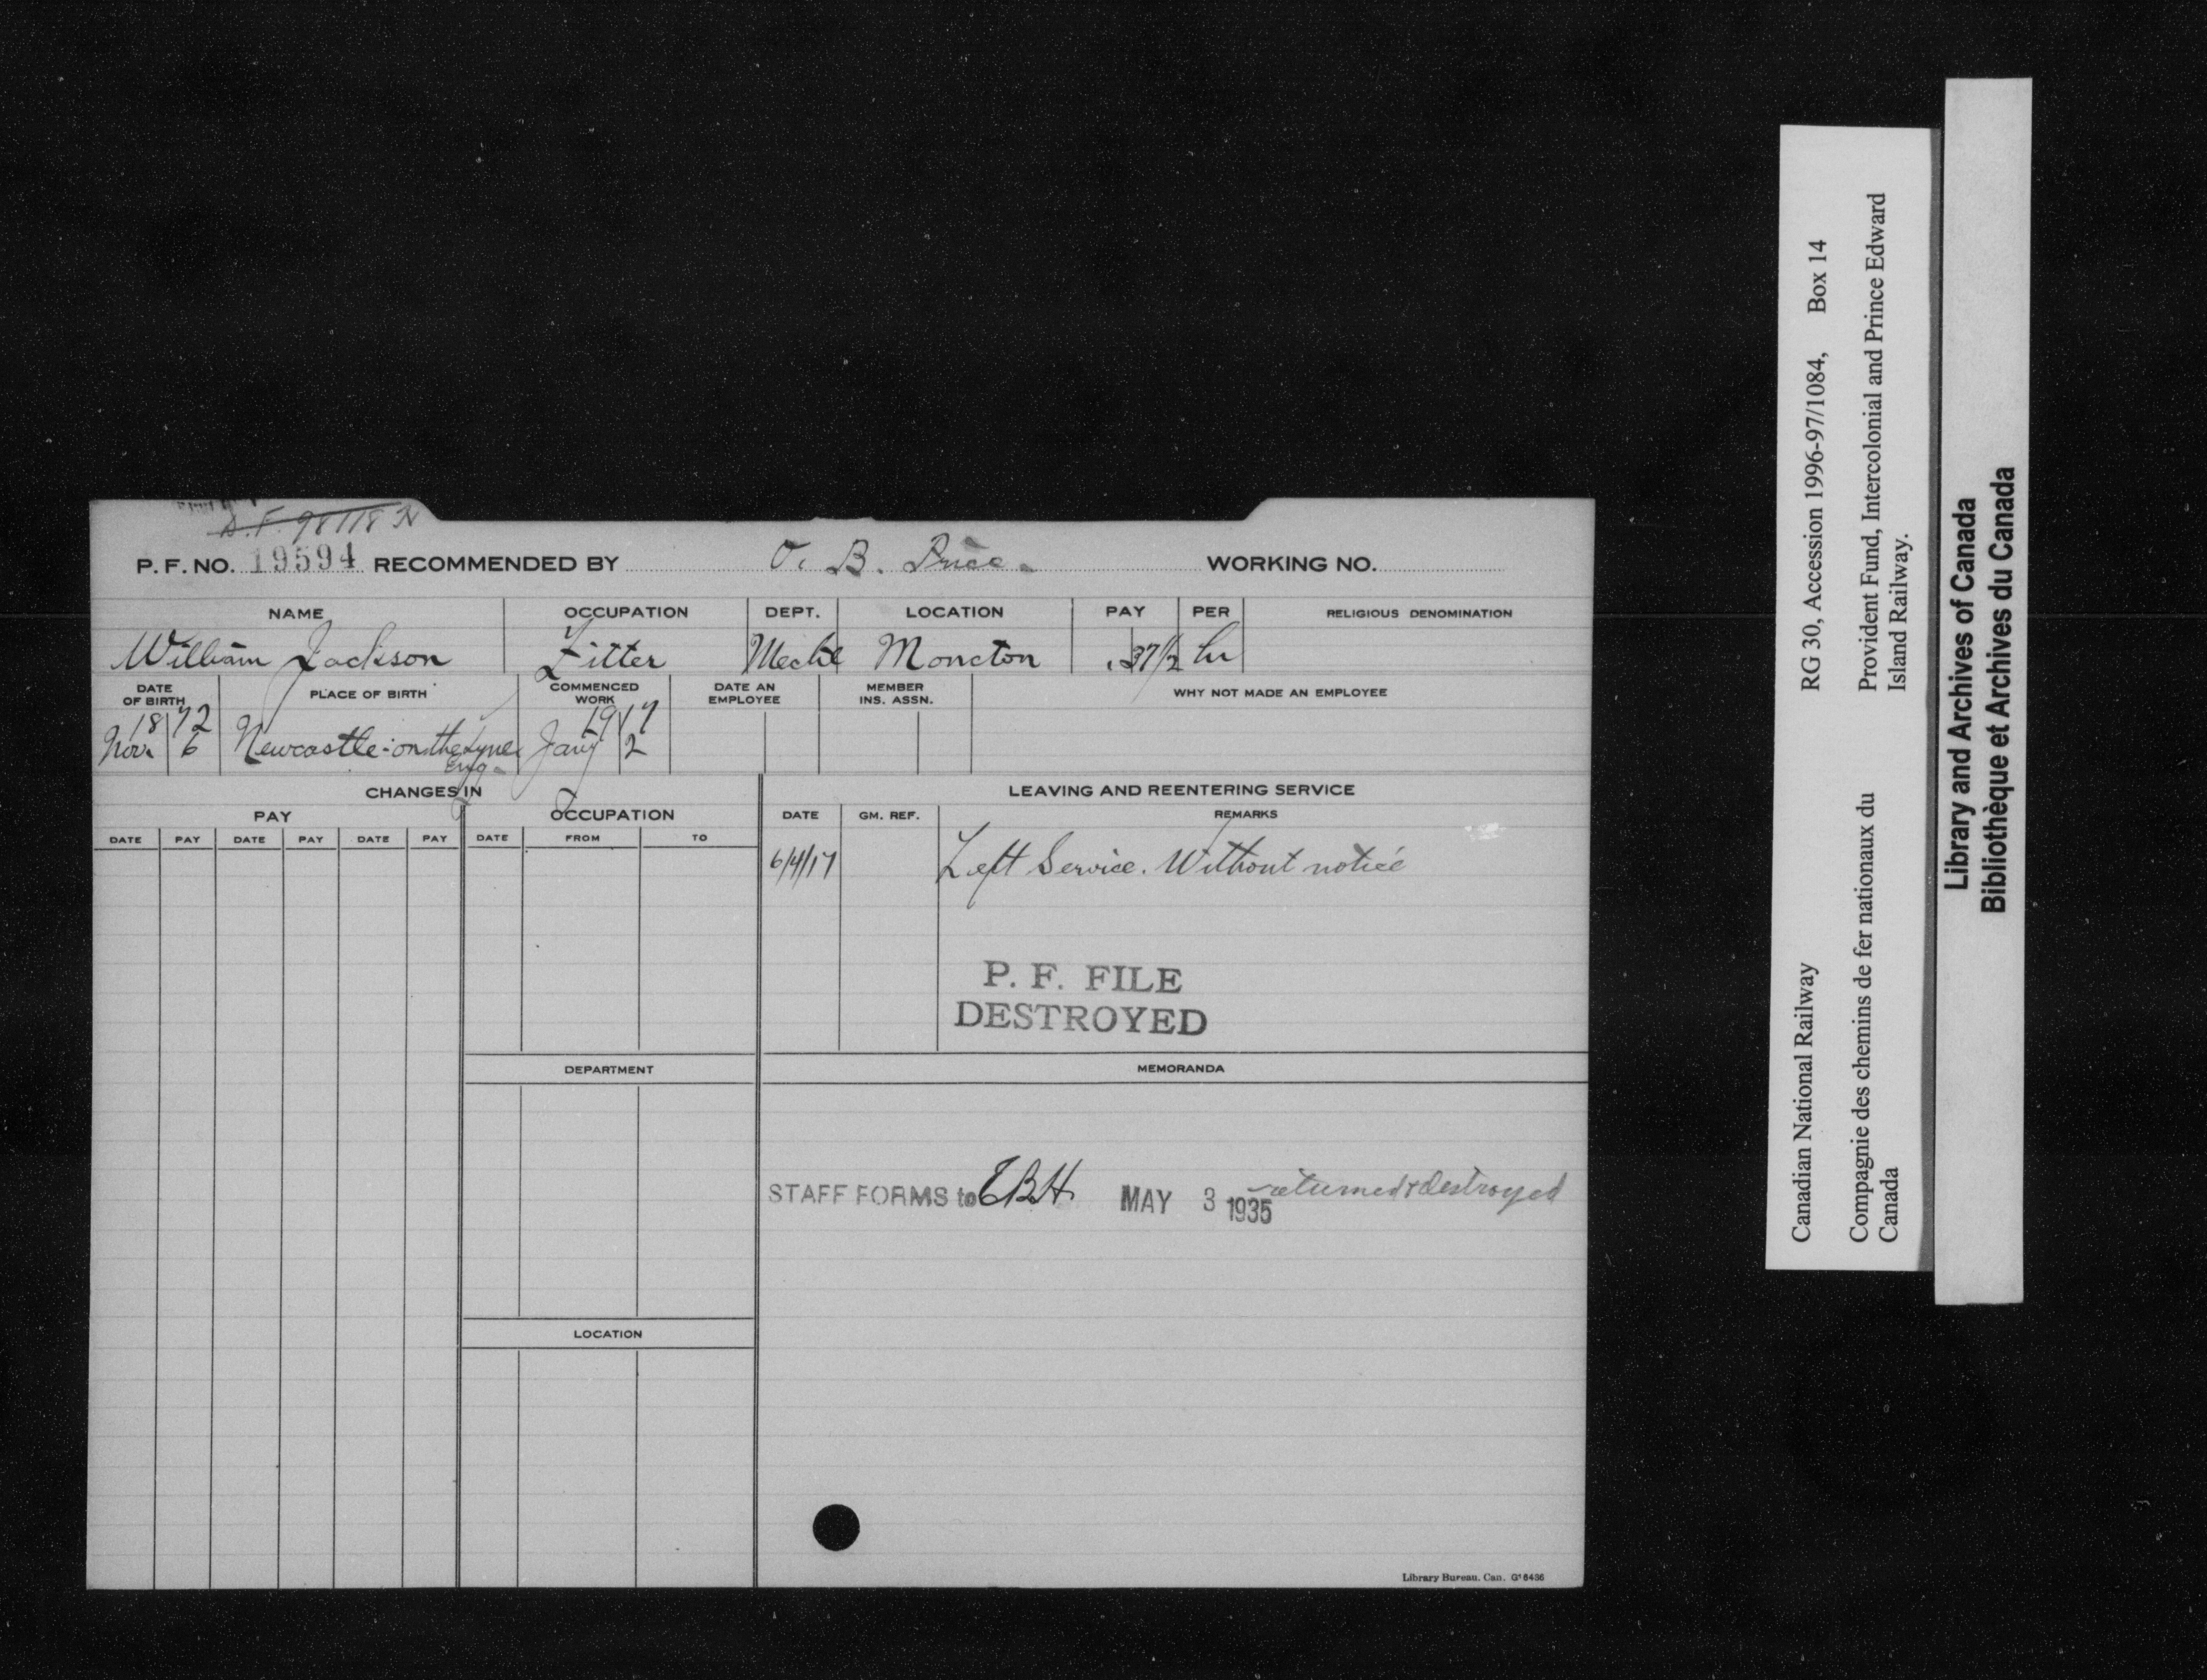 P. F. NO. 19594 RECOMMENDED BY O. B. Price WORKING NO.
NAME OCCUPATION DEPT. LOCATION PAY PER RELIGIOUS DENOMINATION
William Jackson Fitter Mechl Moncton .37½ hr
DATE OF BIRTH PLACE OF BIRTH COMMENCED WORK DATE AN EMPLOYEE MEMBER INS. ASSN. WHY NOT MADE AN EMPLOYEE
1872 1917
Nov. 6 Newcastle-on the Tyne Jany 2
Eng
CHANGES IN LEAVING AND REENTERING SERVICE
PAY OCCUPATION DATE GM. REF. REMARKS
DATE PAY DATE PAY DATE PAY DATE FROM TO
6/4/17 Left Service. Without notice
P. F. FILE
DESTROYED
DEPARTMENT MEMORANDA
STAFF FORMS to EBH. MAY 3 1935 returned & destroyed
LOCATION
Library Bureau. Can.
Canadian National Railway RG 30, Accession 1996-97/1084, Box 14
Compagnie des chemins de fer nationaux du Provident Fund, Intercolonial and Prince Edward
Canada Island Railway.
Library and Archives of Canada
Bibliothèque et Archives du Canada